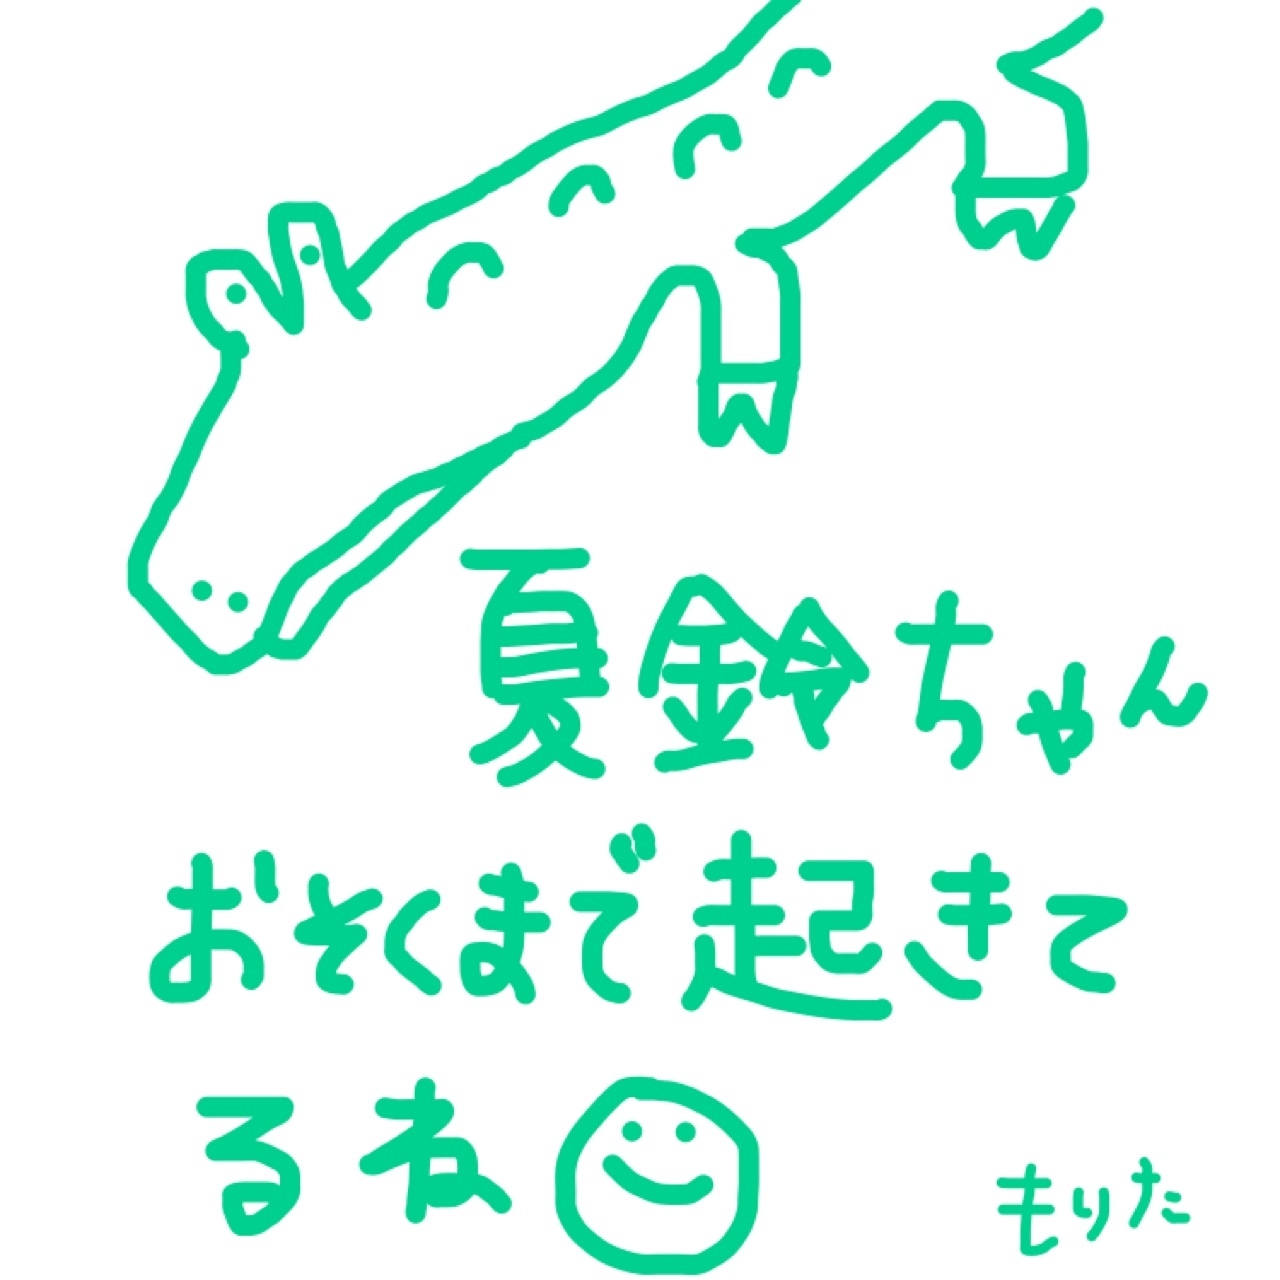 夏鈴ちゃん
おそくまで起きて
るね
もりた